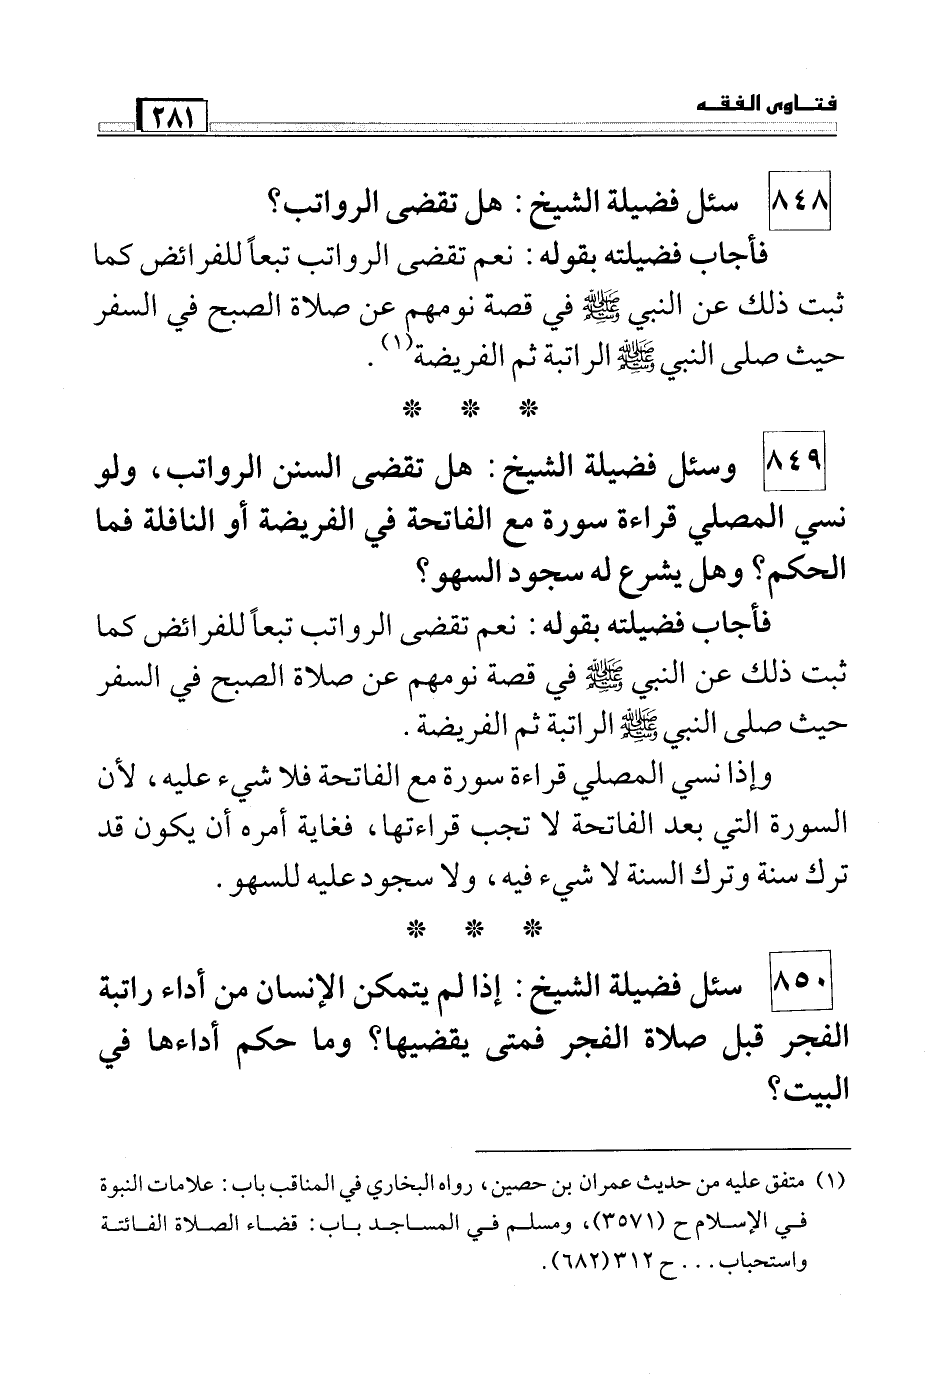 فتاوى الفقه
٢٨١
٨٤٨ سئل فضيلة الشيخ: هل تقضى الرواتب؟
فأجاب فضيلته بقوله: نعم تقضى الرواتب تبعاً للفرائض كما
ثبت ذلك عن النبي ﷺ في قصة نومهم عن صلاة الصبح في السفر
حيث صلى النبي ﷺ الراتبة ثم الفريضة(١).
* * *
٨٤٩ وسئل فضيلة الشيخ: هل تقضى السنن الرواتب، ولو
نسي المصلي قراءة سورة مع الفاتحة في الفريضة أو النافلة فما
الحكم؟ وهل يشرع له سجود السهو؟
فأجاب فضيلته بقوله: نعم تقضى الرواتب تبعاً للفرائض كما
ثبت ذلك عن النبي ﷺ في قصة نومهم عن صلاة الصبح في السفر
حيث صلى النبي ﷺ الراتبة ثم الفريضة.
وإذا نسي المصلي قراءة سورة مع الفاتحة فلا شيء عليه، لأن
السورة التي بعد الفاتحة لا تجب قراءتها، فغاية أمره أن يكون قد
ترك سنة وترك السنة لا شيء فيه، ولا سجود عليه للسهو.
* * *
٨٥٠ سئل فضيلة الشيخ: إذا لم يتمكن الإنسان من أداء راتبة
الفجر قبل صلاة الفجر فمتى يقضيها؟ وما حكم أداءها في
البيت؟
(١) متفق عليه من حديث عمران بن حصين، رواه البخاري في المناقب باب: علامات النبوة
في الإسلام ح (٣٥٧١)، ومسلم في المساجد باب: قضاء الصلاة الفائتة
واستحباب... ح ٣١٢(٦٨٢).